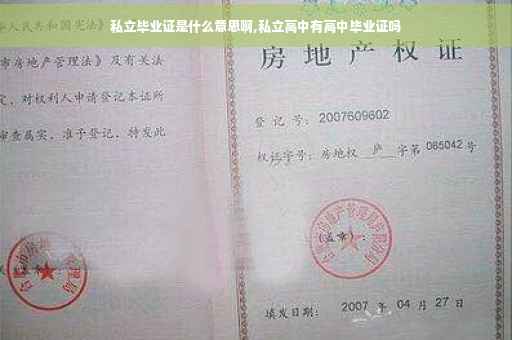 私立毕业证是什么意思啊,私立高中有高中毕业证吗
人民共和国宪法》
市房地产管理法》及有关法
定，对权利人申请登记本证所
审查属实，准予登记，特发此
房地产权
登记号：2007609602
权证字号：房地权 庐 字第 085042 号
房地产管理局
（盖章）：
填发日期： 2007 年 04 月 27 日